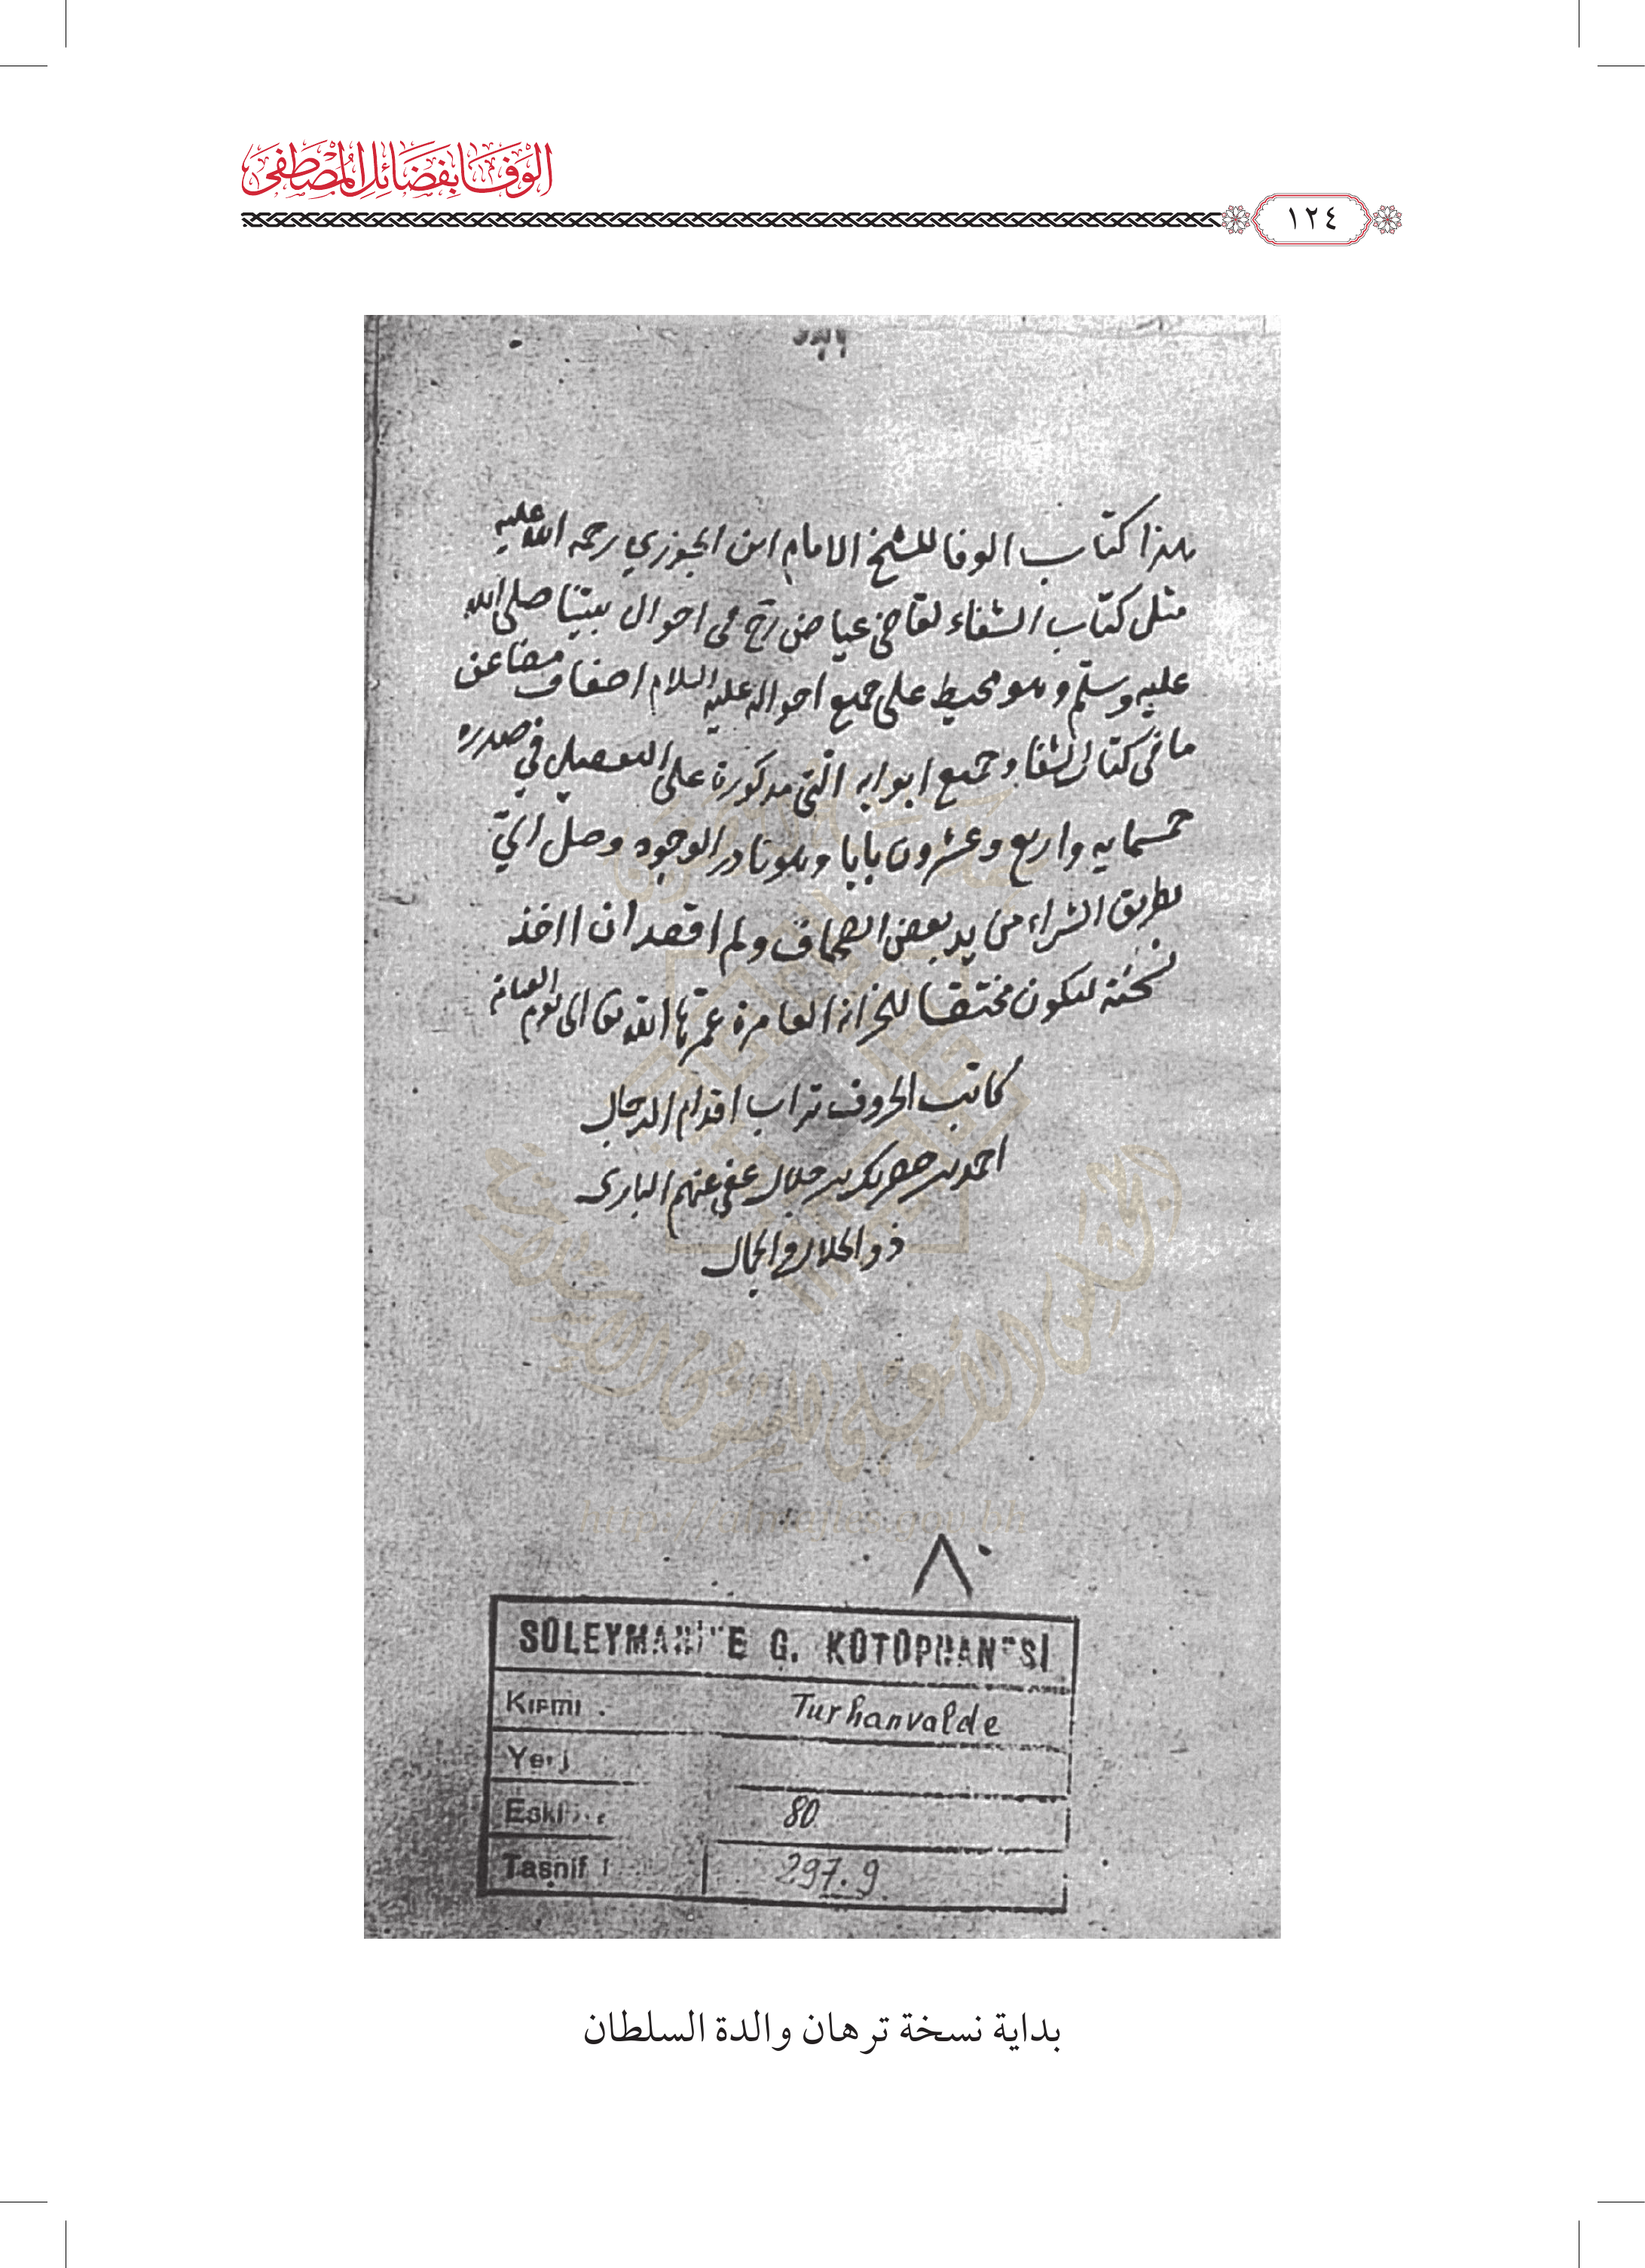 الوفا بفضائل المصطفى
١٢٤
هذا كتاب الوفا للشيخ الامام ابن الجوزي رحمة الله عليه
مثل كتاب الشفاء لقاضى عياض رح فى احوال نبينا صلى الله
عليه وسلم وهو محيط على جميع احواله عليه السلام اضعاف مضاعف
ما فى كتاب الشفا وجميع ابوابه التى مذكورة على التفصيل فى صدره
خمسمايه واربع وعشرون بابا وهو نادر الوجود وصل الىّ
بطريق الشراء من يد بعض الصحاف ولم اقصد ان ااخذ
نسخته ليكون مختصا للخزانة العامرة عمرها الله تعالى الى يوم القيامة
كاتب الحروف تراب اقدام الرجال
احمد بن خضر بك بن جلال عفى عنهم البارى
ذو الجلال والجمال
٨٠
SÜLEYMANİYE G. KÜTÜPHANESİ
Kısmı Turhanvalde
Yeni
Eski 80
Tasnif 297.9
بداية نسخة ترهان والدة السلطان